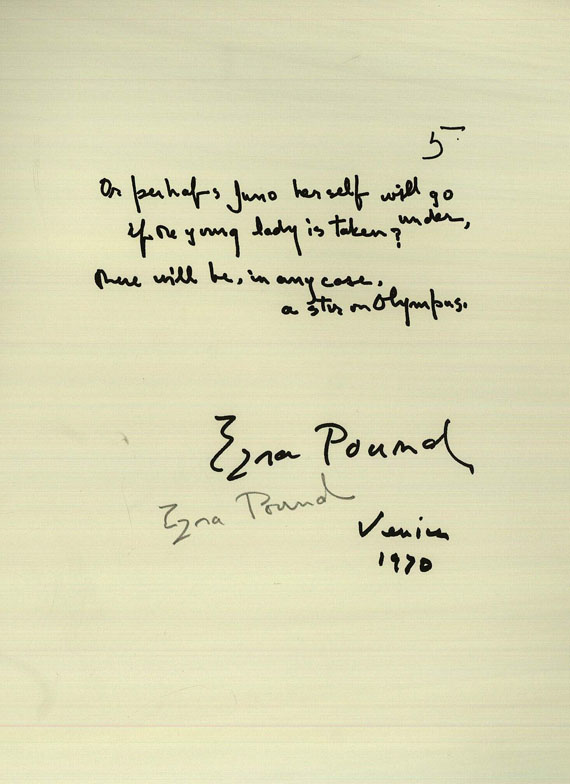 5
Or perhaps Juno herself will go under,
if the young lady is taken?
There will be, in any case,
a stir on Olympus.
Ezra Pound
Ezra Pound
Venice
1970